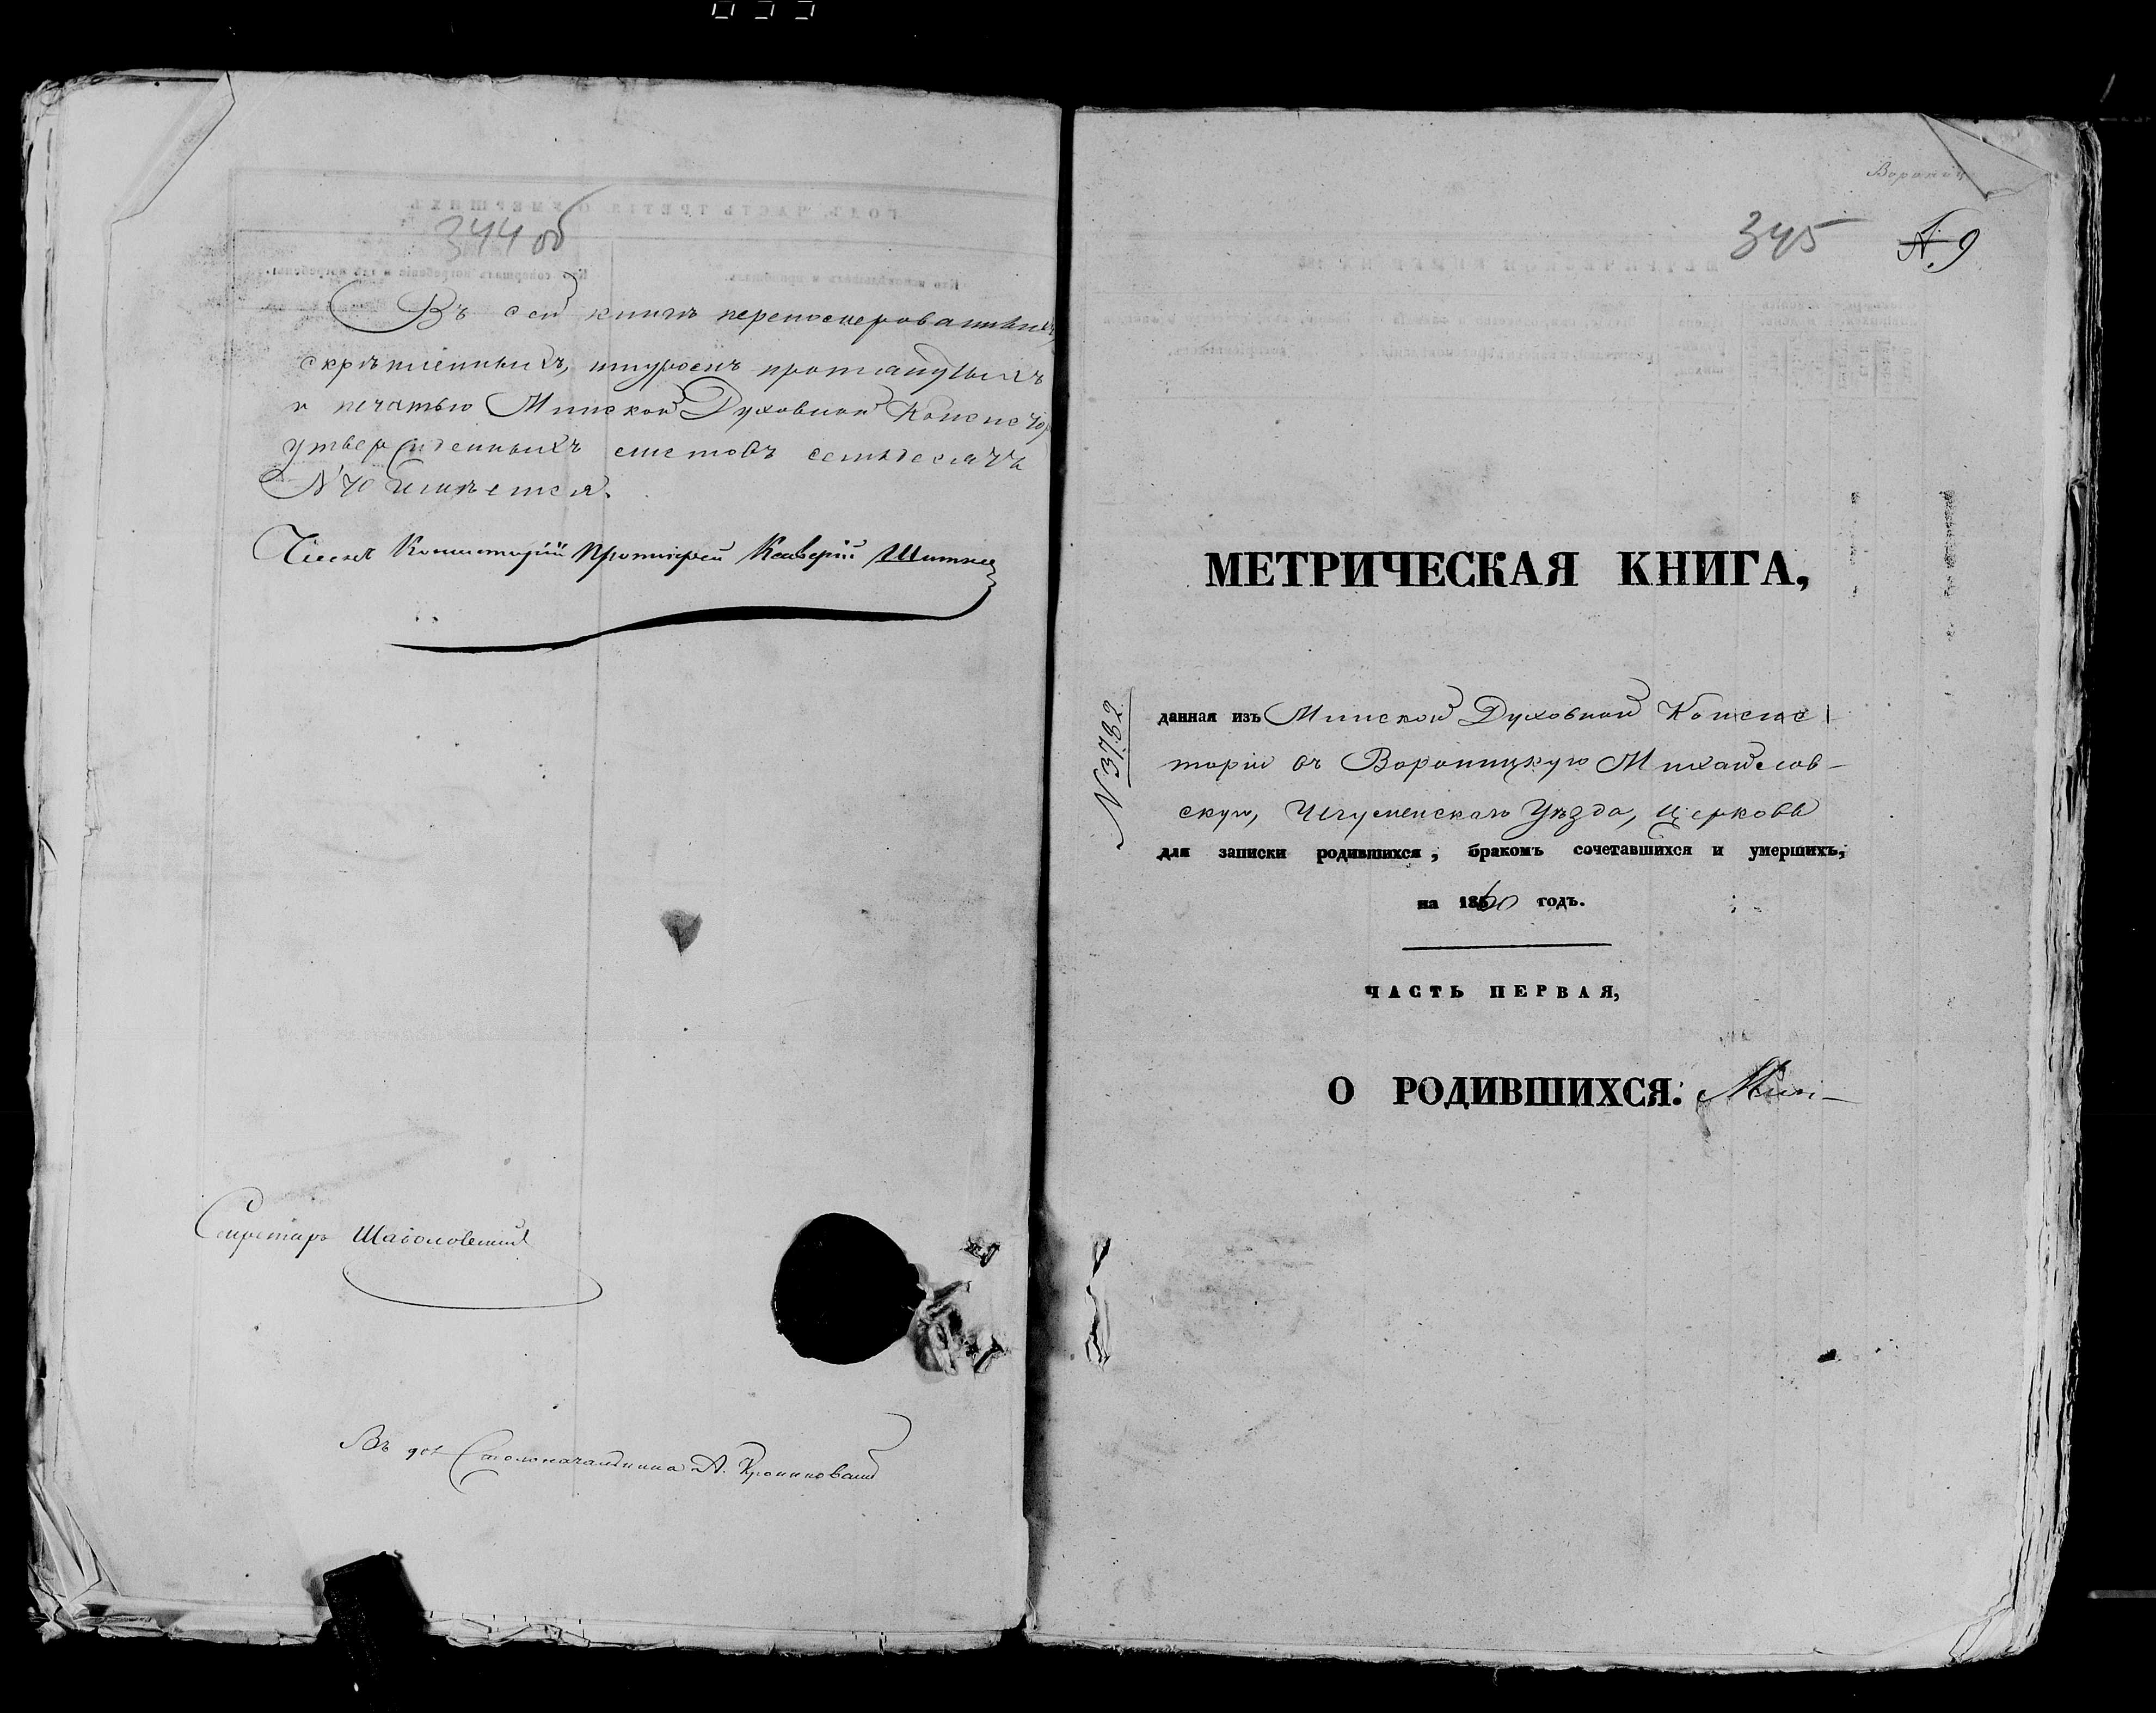 344 об
Въ сей книгѣ перенумерованныхъ,
скрѣпленныхъ, шнуромъ протянутыхъ
и печатью Минской Духовной Консистор
утвержденныхъ листовъ семьдесятъ
N 70 имѣется.
Членъ Консисторіи Протоіерей
Секретарь
Въ дол. Столоначальника А.
345
№ 9
МЕТРИЧЕСКАЯ КНИГА,
N 3782
данная изъ Минской Духовной Консис
торіи въ Вороницкую Михайлов-
скую, Игуменскаго Уѣзда, Церковь
для записки родившихся, бракомъ сочетавшихся и умершихъ,
на 1860 годъ.
ЧАСТЬ ПЕРВАЯ,
О РОДИВШИХСЯ: